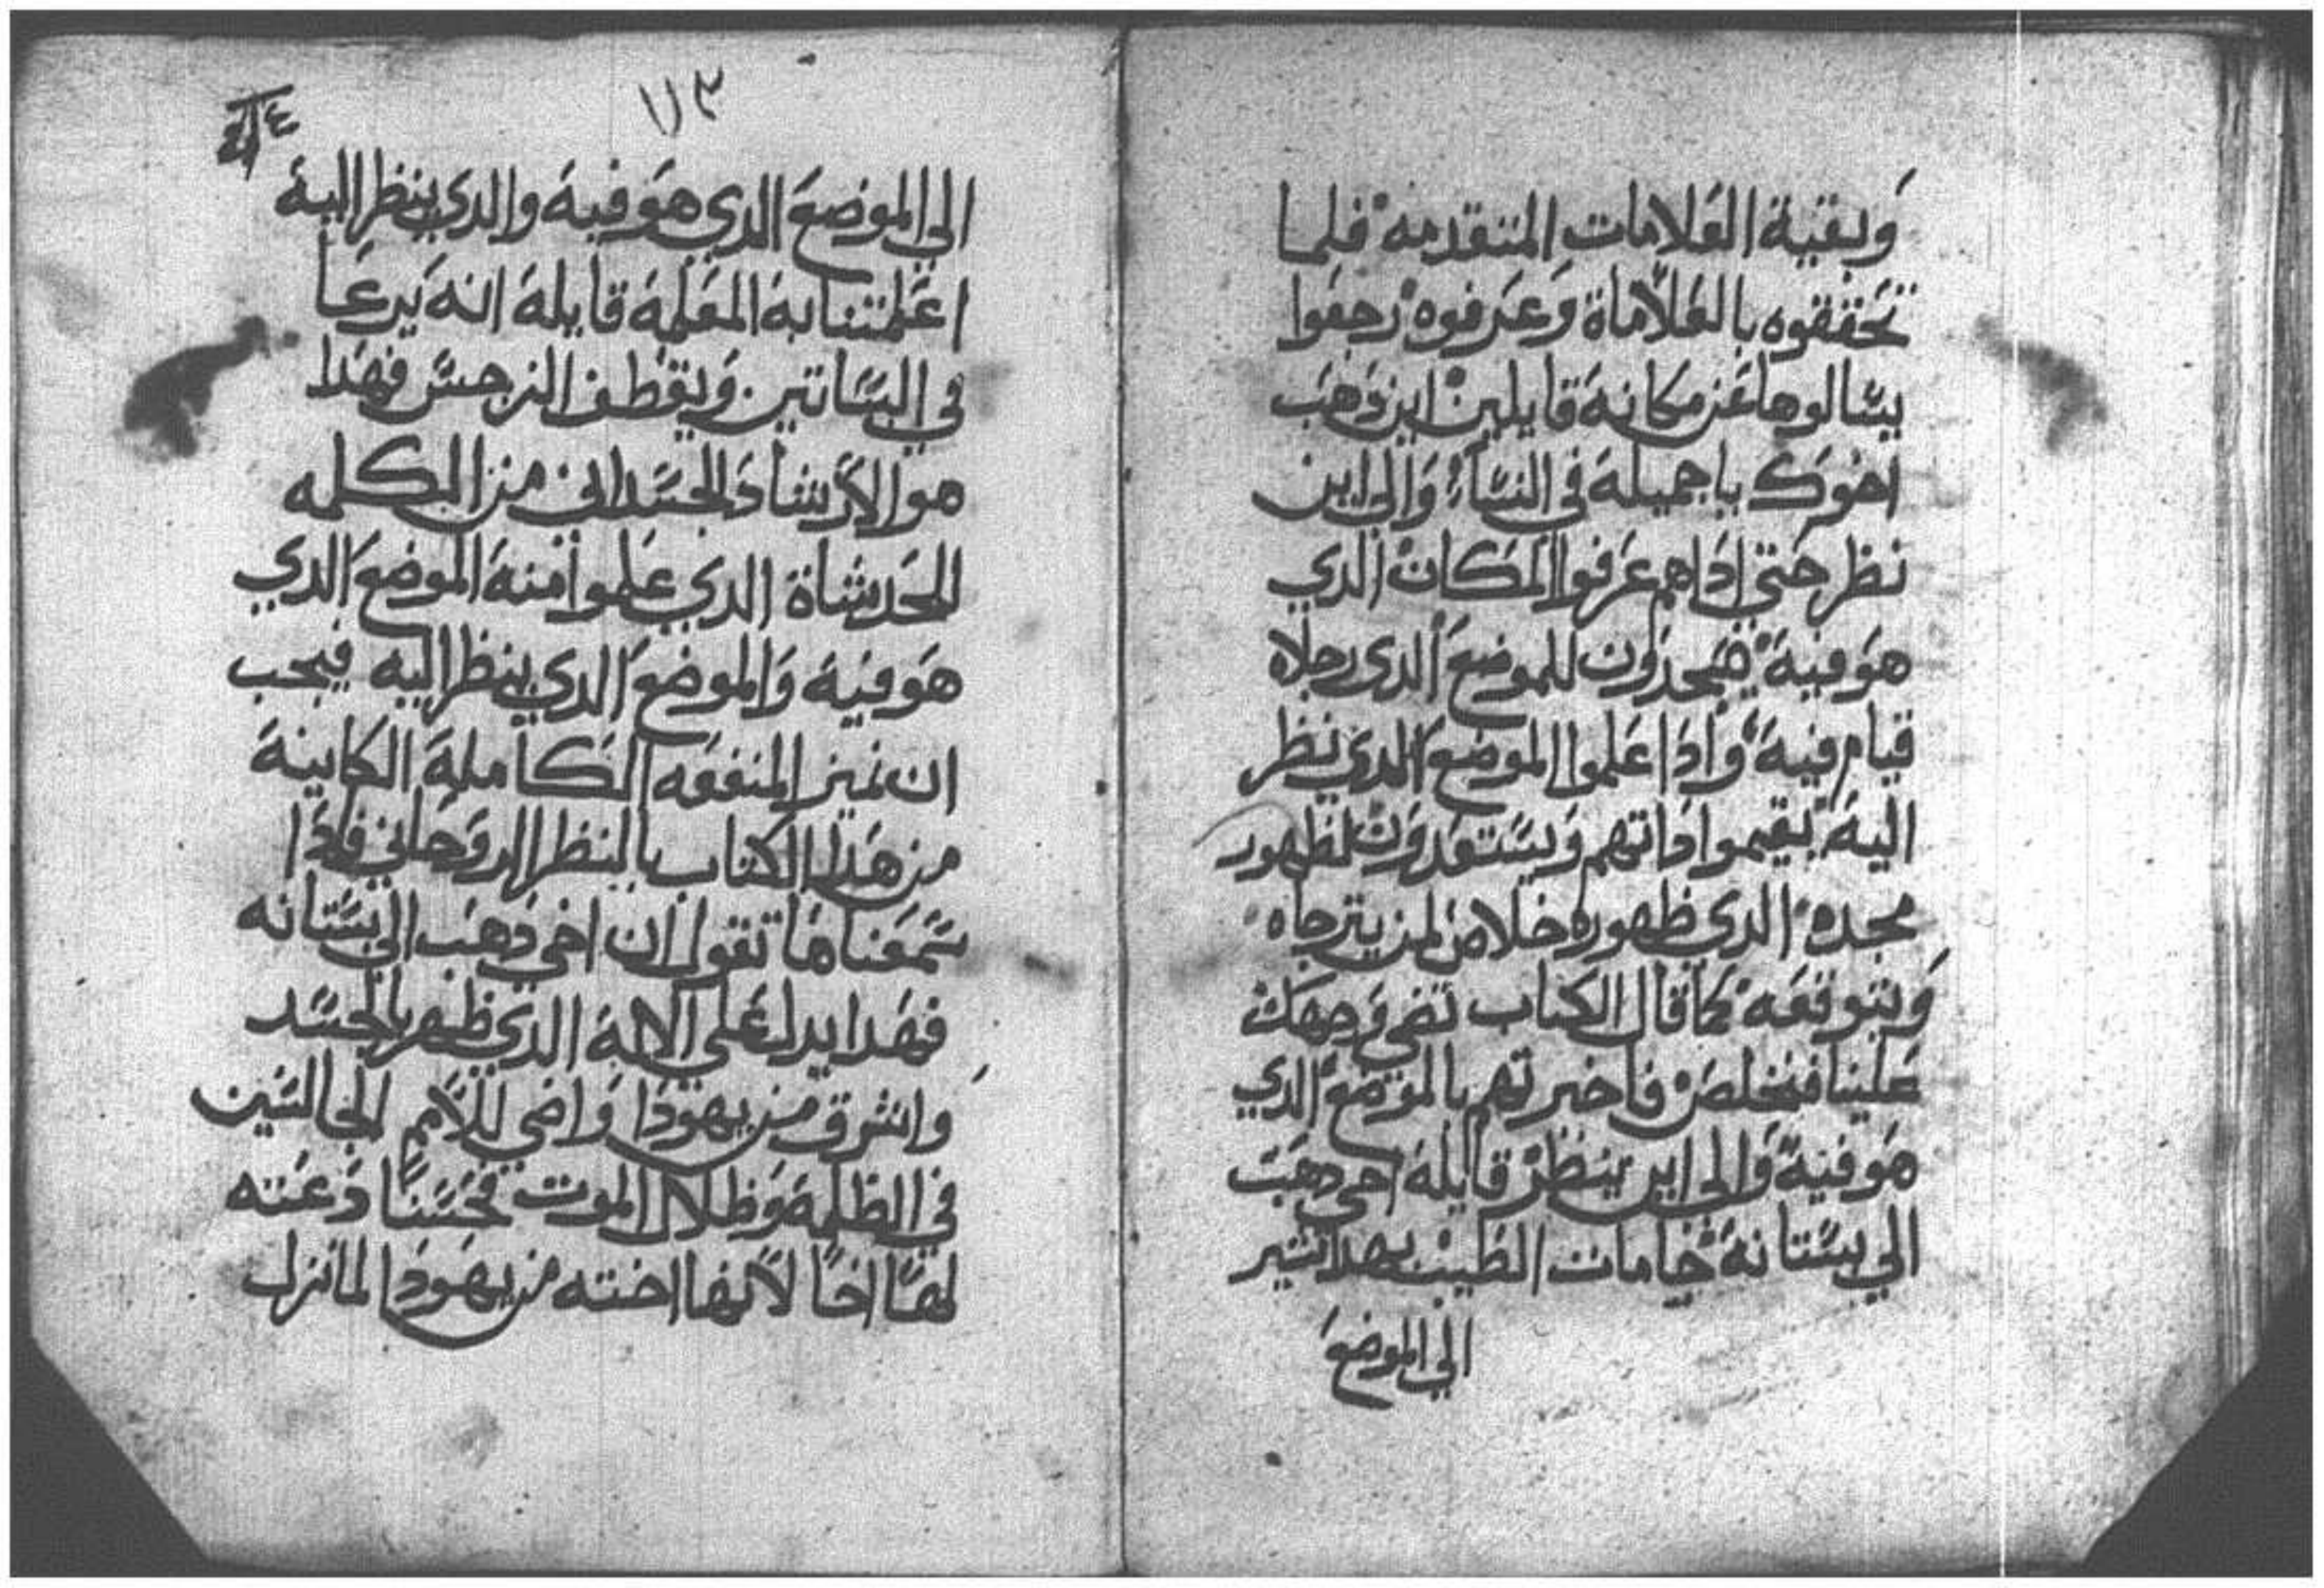 وبقية العلامات المتقدمه فلما
تحققوه بالعلاماة وعرفوه رجعوا
يسالوها عن مكانه قايلين اين دهب
اخوك ياجميلة في النسآء والي اين
نظر حتي اداهم عرفوا المكان الدي
هو فيه يسجدون للموضع الدى رجلاه
قيام فيه وادا علموا الموضع الدي نظر
اليه يقيموا داتهم ويستعدون لظهور
مجده الدي ظهوره خلاص لمن يترجاه
ويتوقعه كما قال الكتاب تضي وجهك
علينا فنخلص فاخبرتهم بالموضع الدي
هو فيه والي اين ينظر قايلة اخي دهب
الي بستانه جامات الطيب بهدا تشير
الي الموضع
١١٣
الي الموضع الدي هو فيه والدي ينظر اليه
اعلمتنا به المعلمة قايلة انه يرعا
في البساتين ويقطف النرجس فهدا
هو الارشاد الجسداني من الكلمه
المحدثاة الدي علموا منه الموضع الدي
هو فيه والموضع الدي ينظر اليه فيجب
ان نميز المنفعه الكاملة الكاينة
من هدا الكتاب بالنظر الروحاني فادا
سمعنا ما تقول ان اخي دهب الي بستانه
فهدا يدل علي الاله الدي ظهر بالجسد
واشرق من يهودا واضي للامم الجالسين
في الظلمة وظلال الموت فحسنا دعته
لها اخا لانها اخته من يهودا لما نزل